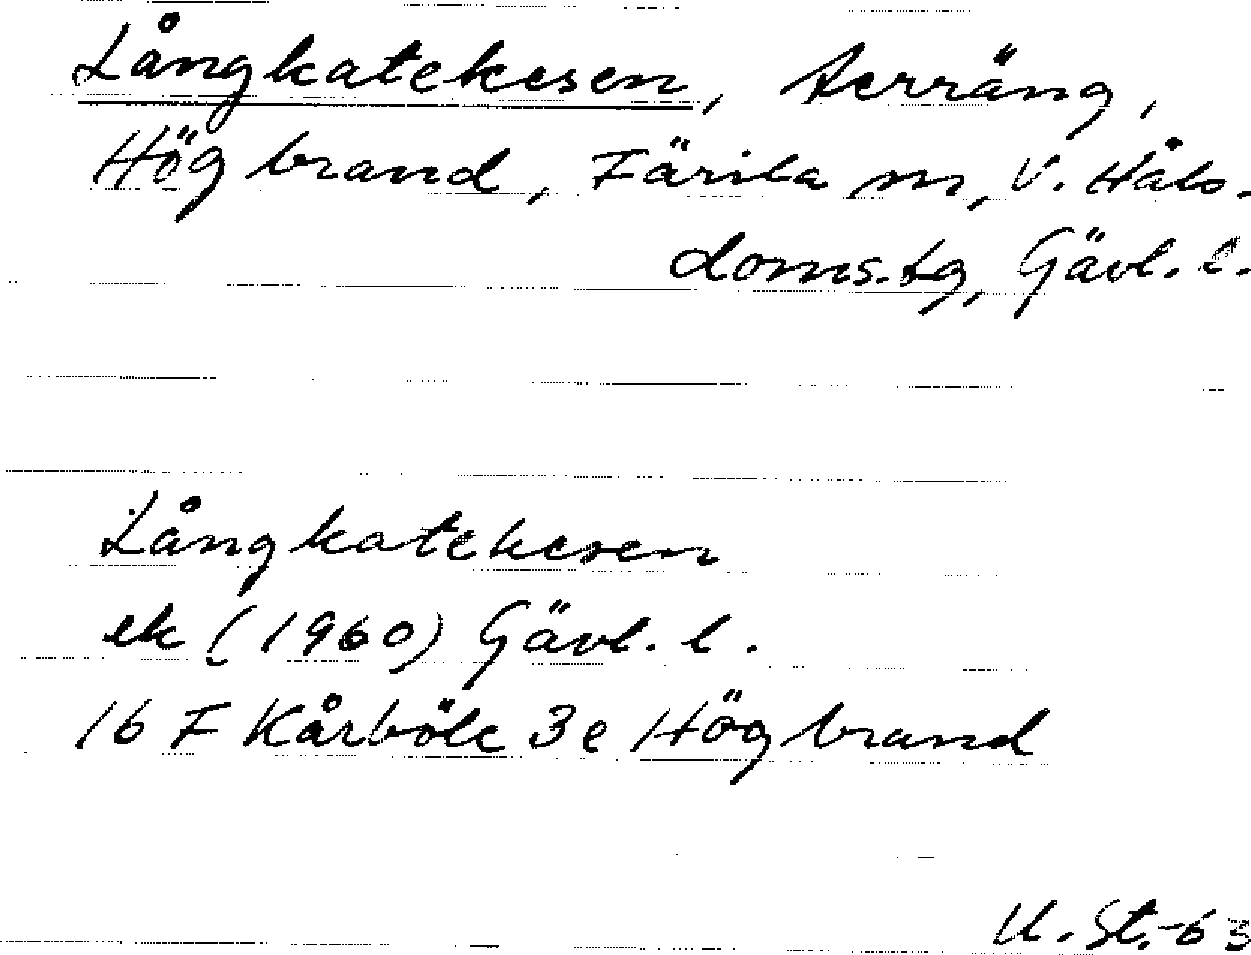 Långkatekesen, terräng,
Högbrand, Färila sn, V. Häls.
doms.tg, Gävl. l.
Långkatekesen
ek (1960) Gävl. l.
16 F Kårböle 3e Högbrand
U. St.-63